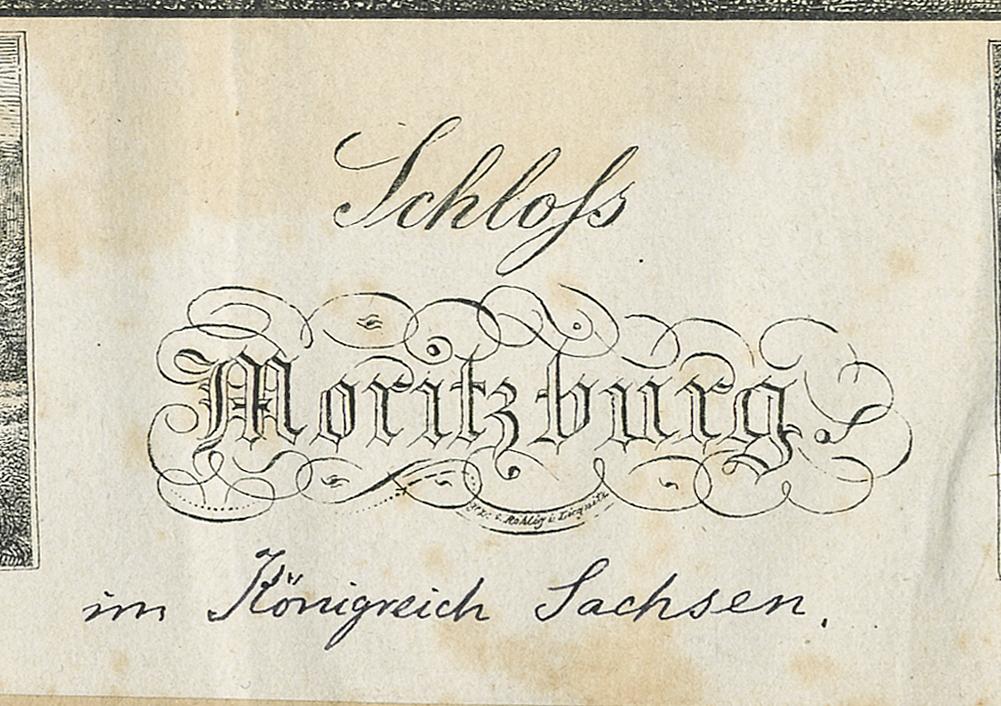 Schloſs
Moritzburg.
v. Rohlig i. Liegnitz
im Königreich Sachsen.